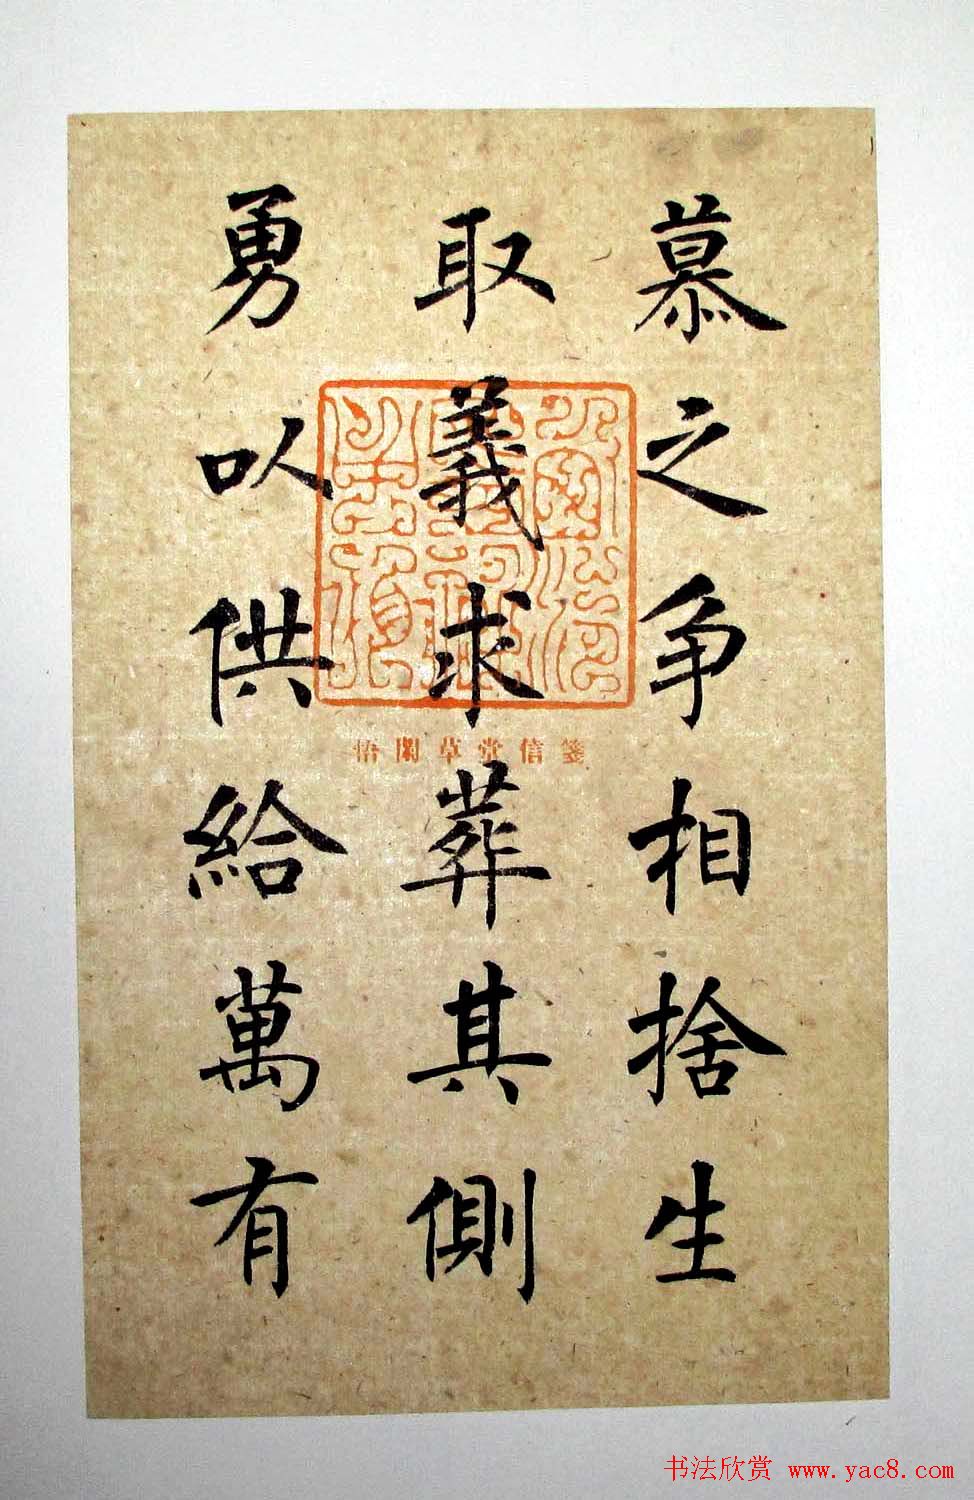 慕之争相捨生
取義求葬其側
勇以供給萬有
悟閑草堂信箋
书法欣赏 www.yac8.com